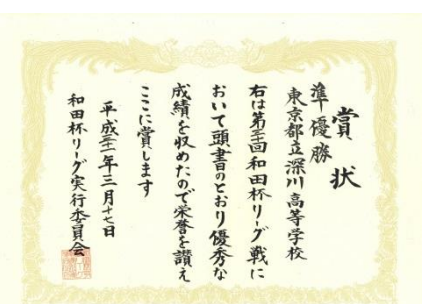 賞状
準優勝
東京都立深川高等学校
右は第三回和田杯リーグ戦に
おいて頭書のとおり優秀な
成績を収めたので栄誉を讃え
ここに賞します
平成三十一年三月十七日
和田杯リーグ実行委員会